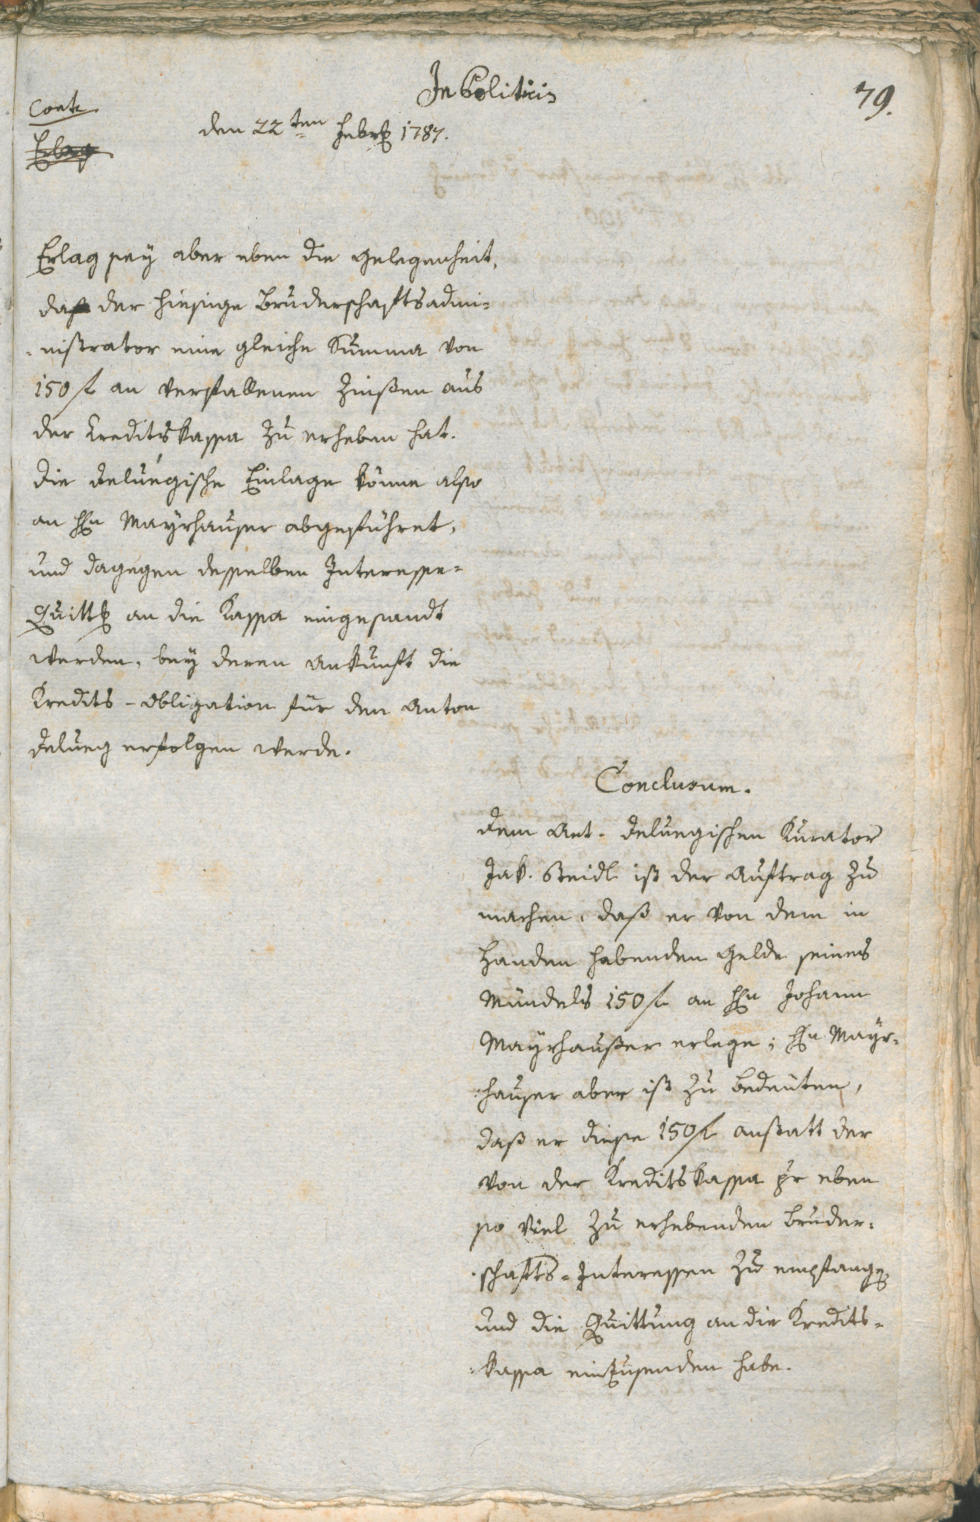 In Politicis
79.
Cont.
Erlag
den 22ten Febr. 1787.
Erlag sey aber eben die Gelegenheit,
daß der hiesige Bruderschaftsadmi-
nistrator eine gleiche Summa von
150 f an verfallenen Zinßen aus
der Creditskassa zu erheben hat.
die Deluegische Einlage könne also
an Hn Mayrhauser abgeführet,
und dagegen desselben Interesse-
Quittg an die Kassa eingesandt
werden, bey deren Ankunft die
Kredits-Obligation für den Anton
Delueg erfolgen werde.
Conclusum.
Dem Ant. Deluegischen Kurator
Jak. Steidl ist der Auftrag zu
machen, daß er von dem in
Handen habenden Gelde seines
Mündels 150 f an Hn Johann
Mayrhaußer erlege; Hn Mayr-
hauser aber ist zu bedeuten,
daß er diese 150 f anstatt der
von der Kreditskassa pr eben
so viel zu erhebenden Bruder-
schafts-Interessen zu empfangen
und die Quittung an die Kredits-
kassa einzusenden habe.